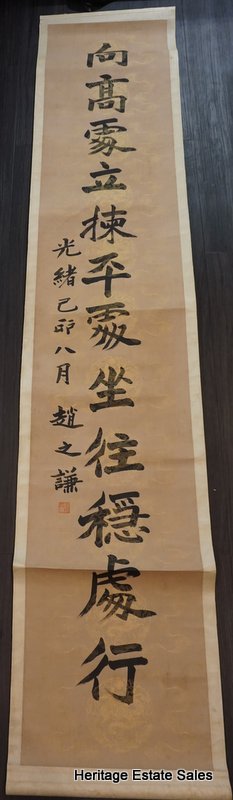 向高處立揀平處坐往穩處行
光緒己卯八月 趙之謙
Heritage Estate Sales